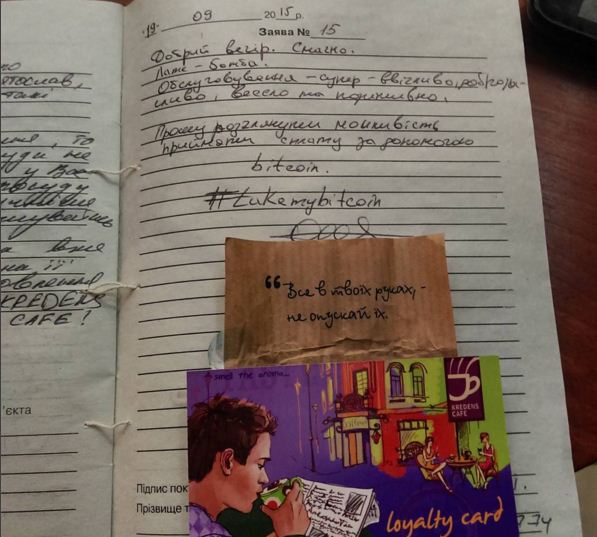 ятослав,
такі
ння, то
уди не
у Вас
KREDENS
CAFE!
'єкта
"19" 09 2015 р.
Заява № 15
Добрий вечір. Смачно.
Лате - бомба.
Обслуговування - супер - ввічливо,
ливо, весело та
Прошу розглянути можливість
приймати сплату за допомогою
bitcoin.
#Takemybitcoin
“Все в твоїх руках, -
не опускай їх.
smell the aroma...
KREDENS
CAFE
loyalty card
Підпис пок
Прізвище т